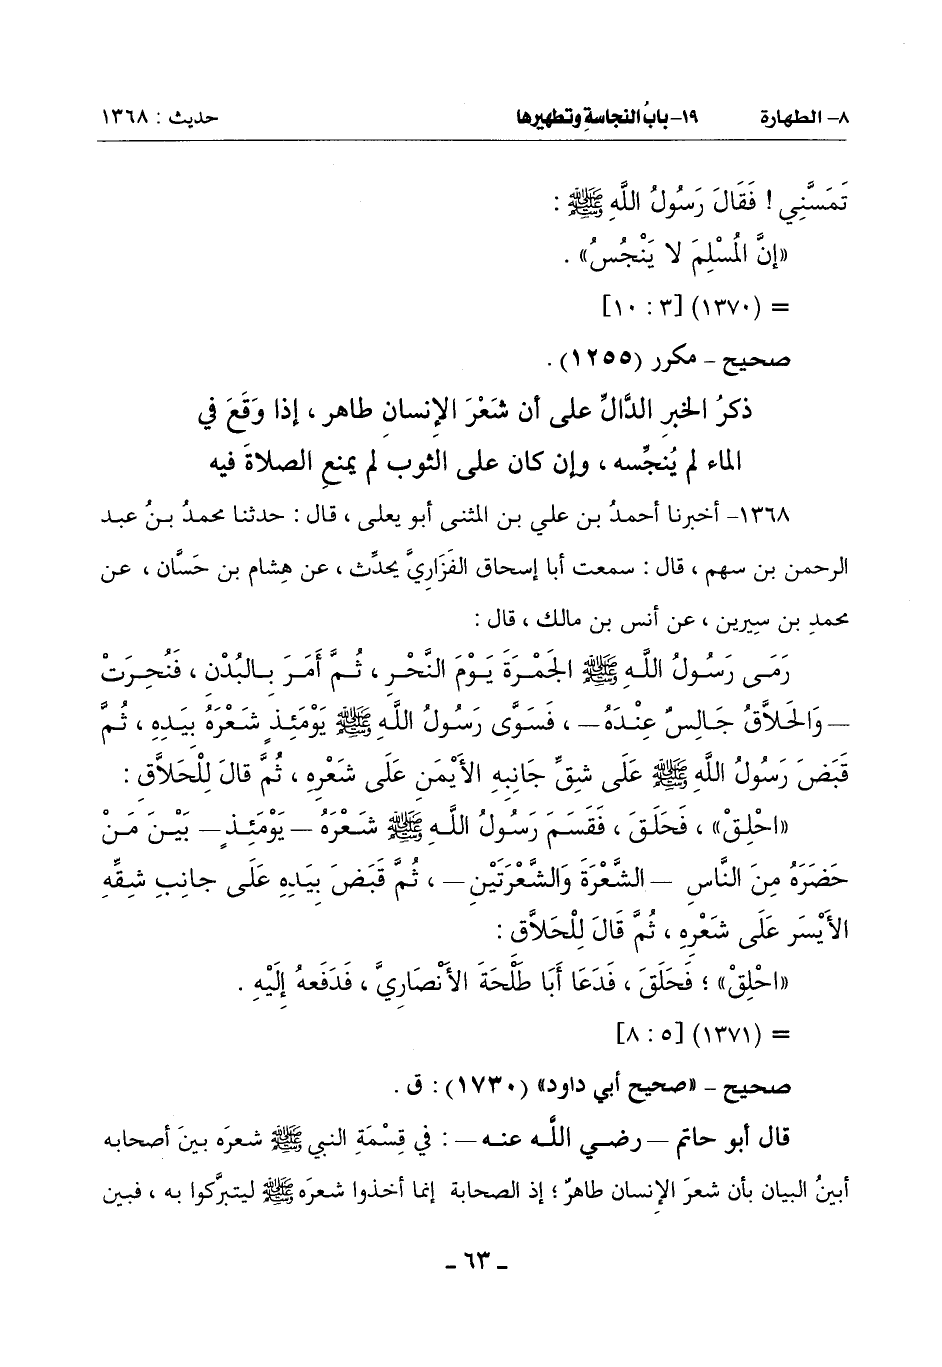 ٨- الطهارة ١٩- بابُ النجاسةِ وتطهيرها حديث : ١٣٦٨
تَمَسَّنِي ! فَقَالَ رَسُولُ اللَّهِ ﷺ :
«إِنَّ الْمُسْلِمَ لا يَنْجُسُ» .
= (١٣٧٠) [٣ : ١٠]
صحيح - مكرر (١٢٥٥) .
ذكرُ الخبرِ الدَّالِّ على أن شَعْرَ الإنسان طاهر ، إذا وَقَعَ في
الماء لم يُنجِّسه ، وإن كان على الثوب لم يمنعِ الصلاةَ فيه
١٣٦٨- أخبرنا أحمدُ بن علي بن المثنى أبو يعلى ، قال : حدثنا محمدُ بنُ عبد
الرحمن بن سهم ، قال : سمعت أبا إسحاق الفَزَاريَّ يحدِّث ، عن هِشام بن حَسَّان ، عن
محمدِ بن سيرين ، عن أنس بن مالك ، قال :
رَمَى رَسُولُ اللَّهِ ﷺ الجَمْرَةَ يَوْمَ النَّحْرِ ، ثُمَّ أَمَرَ بِالبُدْنِ ، فَنُحِرَتْ
— وَالحَلاَّقُ جَالِسٌ عِنْدَهُ — ، فَسَوَّى رَسُولُ اللَّهِ ﷺ يَوْمَئِذٍ شَعْرَهُ بِيَدِهِ ، ثُمَّ
قَبَضَ رَسُولُ اللَّهِ ﷺ عَلَى شِقِّ جَانِبِهِ الأَيْمَنِ عَلَى شَعْرِهِ ، ثُمَّ قالَ لِلْحَلاَّقِ :
«احْلِقْ» ، فَحَلَقَ ، فَقَسَمَ رَسُولُ اللَّهِ ﷺ شَعْرَهُ — يَوْمَئِذٍ — بَيْنَ مَنْ
حَضَرَهُ مِنَ النَّاسِ — الشَّعْرَةَ وَالشَّعْرَتَيْنِ — ، ثُمَّ قَبَضَ بِيَدِهِ عَلَى جانِبِ شِقِّهِ
الأَيْسَرِ عَلَى شَعْرِهِ ، ثُمَّ قَالَ لِلْحَلاَّقِ :
«احْلِقْ» ؛ فَحَلَقَ ، فَدَعَا أَبَا طَلْحَةَ الأَنْصَارِيَّ ، فَدَفَعهُ إِلَيْهِ .
= (١٣٧١) [٥ : ٨]
صحيح - «صحيح أبي داود» (١٧٣٠) : ق .
قال أبو حاتم — رضي اللَّه عنه — : في قِسْمَةِ النبي ﷺ شعرَه بينَ أصحابه
أبينُ البيان بأن شعرَ الإنسان طاهرٌ ؛ إذ الصحابة إنما أخذوا شعرَه ﷺ ليتبرَّكوا به ، فبين
- ٦٣ -